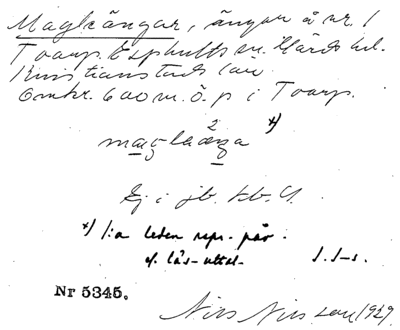 Maglaängar, ängar å nr. 1
Toarp. Esphults sn. Gärds hd.
Kristianstads län
Omkr. 600 m. ö. p i Toarp.
maglaänga x)
2
Ej i jb. kb. U.
x) 1:a leden repr.
läs-uttal.
Nr 5345.
Nils Nilsson 1929.